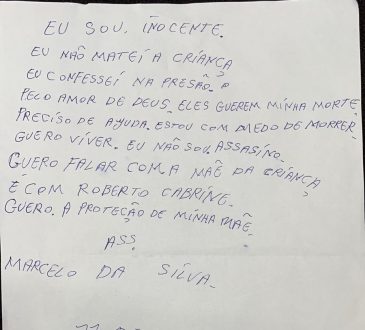 EU SOU. INOCENTE.
EU NÃO MATEI A CRIANÇA
EU CONFESSEI NA PRESÃO. P
PELO AMOR DE DEUS. ELES GUEREM MINHA MORTE
PRECISO DE AYUDA. ESTOU COM MEDO DE MORRER
GUERO VIVER. EU NÃO SOU. ASSASINO.
GUERO FALAR COM. A MÃE DA CRIANÇA
E COM ROBERTO CABRINE.
GUERO. A PROTEÇÃO DE MINHA MÃE.
ASS.
MARCELO DA SILVA.